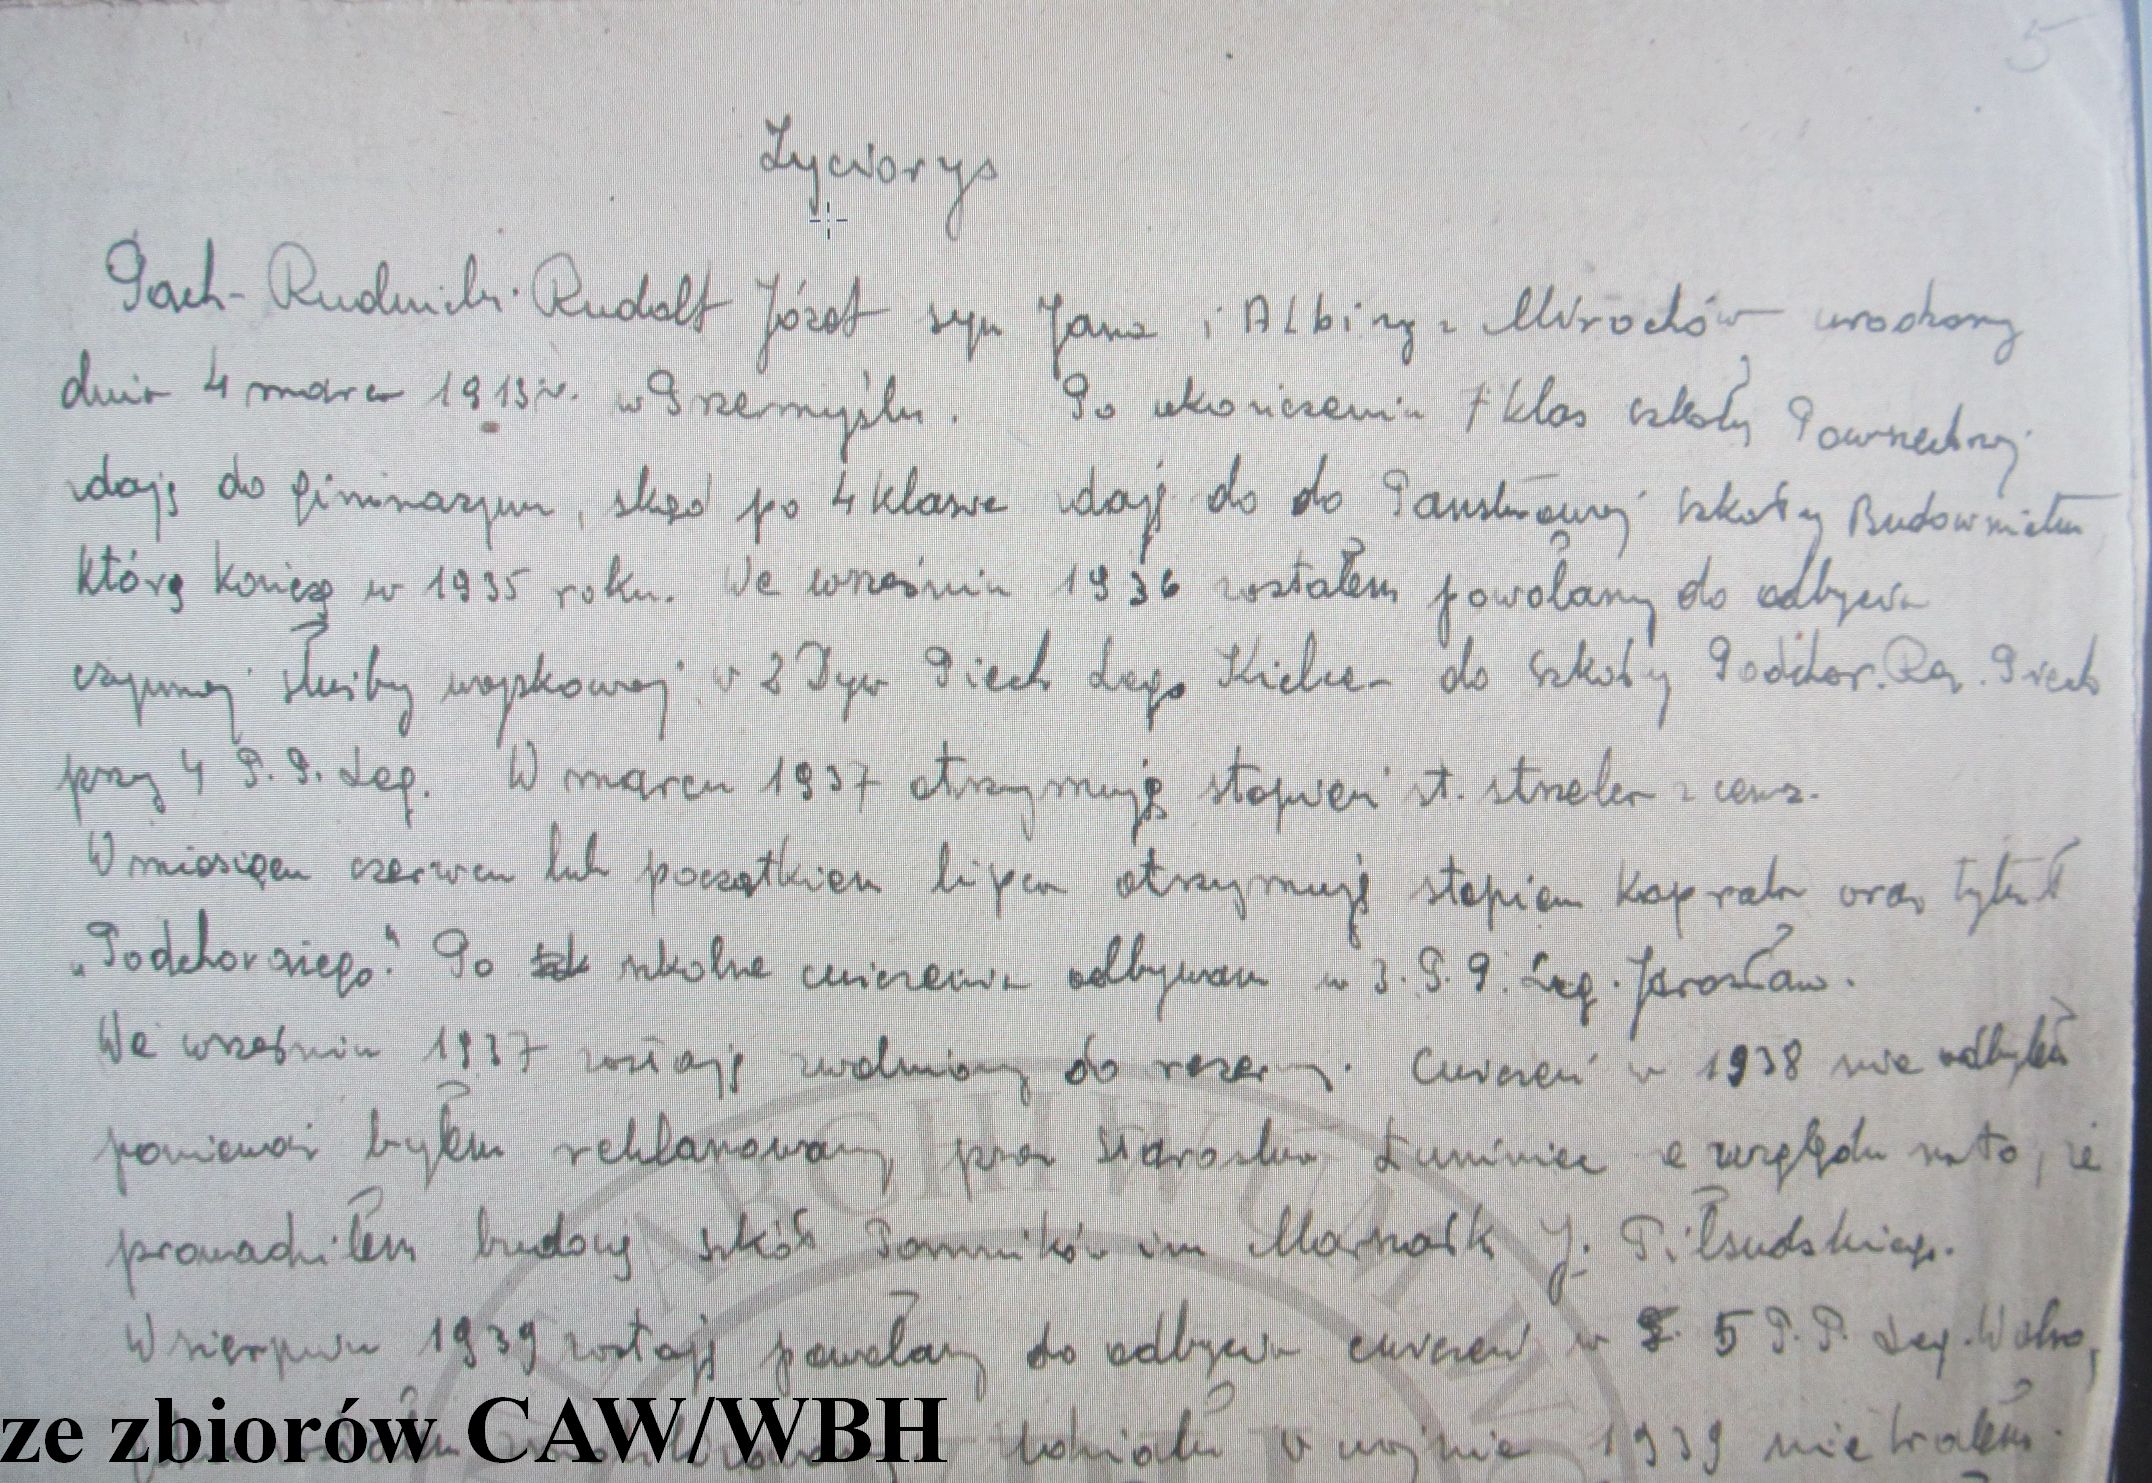 5
Życiorys
Pach-Rudnicki Rudolf Józef syn Jana i Albiny z Mirochów urodzony
dnia 4 marca 1913 r. w Przemyślu. Po ukończeniu 7 klas szkoły Powszechnej
idaję do gimnazjum, skąd po 4 klasie idaję do do Państwowej szkoły Budownictwa
którą kończę w 1935 roku. We wrześniu 1936 zostałem powołany do odbycia
czynnej służby wojskowej w 2 Dyw Piech Leg. Kielce - do szkoły Podchor. Rez. Piech
przy 4 P.P. Leg. W marcu 1937 otrzymuję stopień st. strzelca z cenz.
W miesiącu czerwcu lub początkiem lipca otrzymuję stopień kaprala oraz tytuł
„Podchorążego". Po szkolne ćwiczenia odbywam w 3. P.P. Leg. Jarosław.
We wrześniu 1937 zostaję zwolniony do rezerwy. Ćwiczeń w 1938 nie odbyłem
ponieważ byłem reklamowany przez Starostwo Łuniniec z względu na to, że
prowadziłem budowę szkół Pomników im Marszałk J. Piłsudskiego.
W sierpniu 1939 zostaję powołany do odbycia ćwiczeń w 5 P.P. Leg. Wilno,
udziału w wojnie 1939 nie brałem.
ze zbiorów CAW/WBH